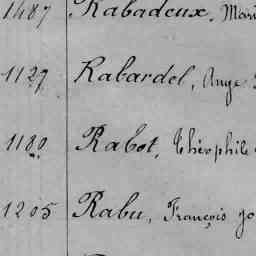 1487 Rabadeux, Mari
1127 Rabardel, Ange
1180 Rabot, Théophile
1205 Rabu, François Jo